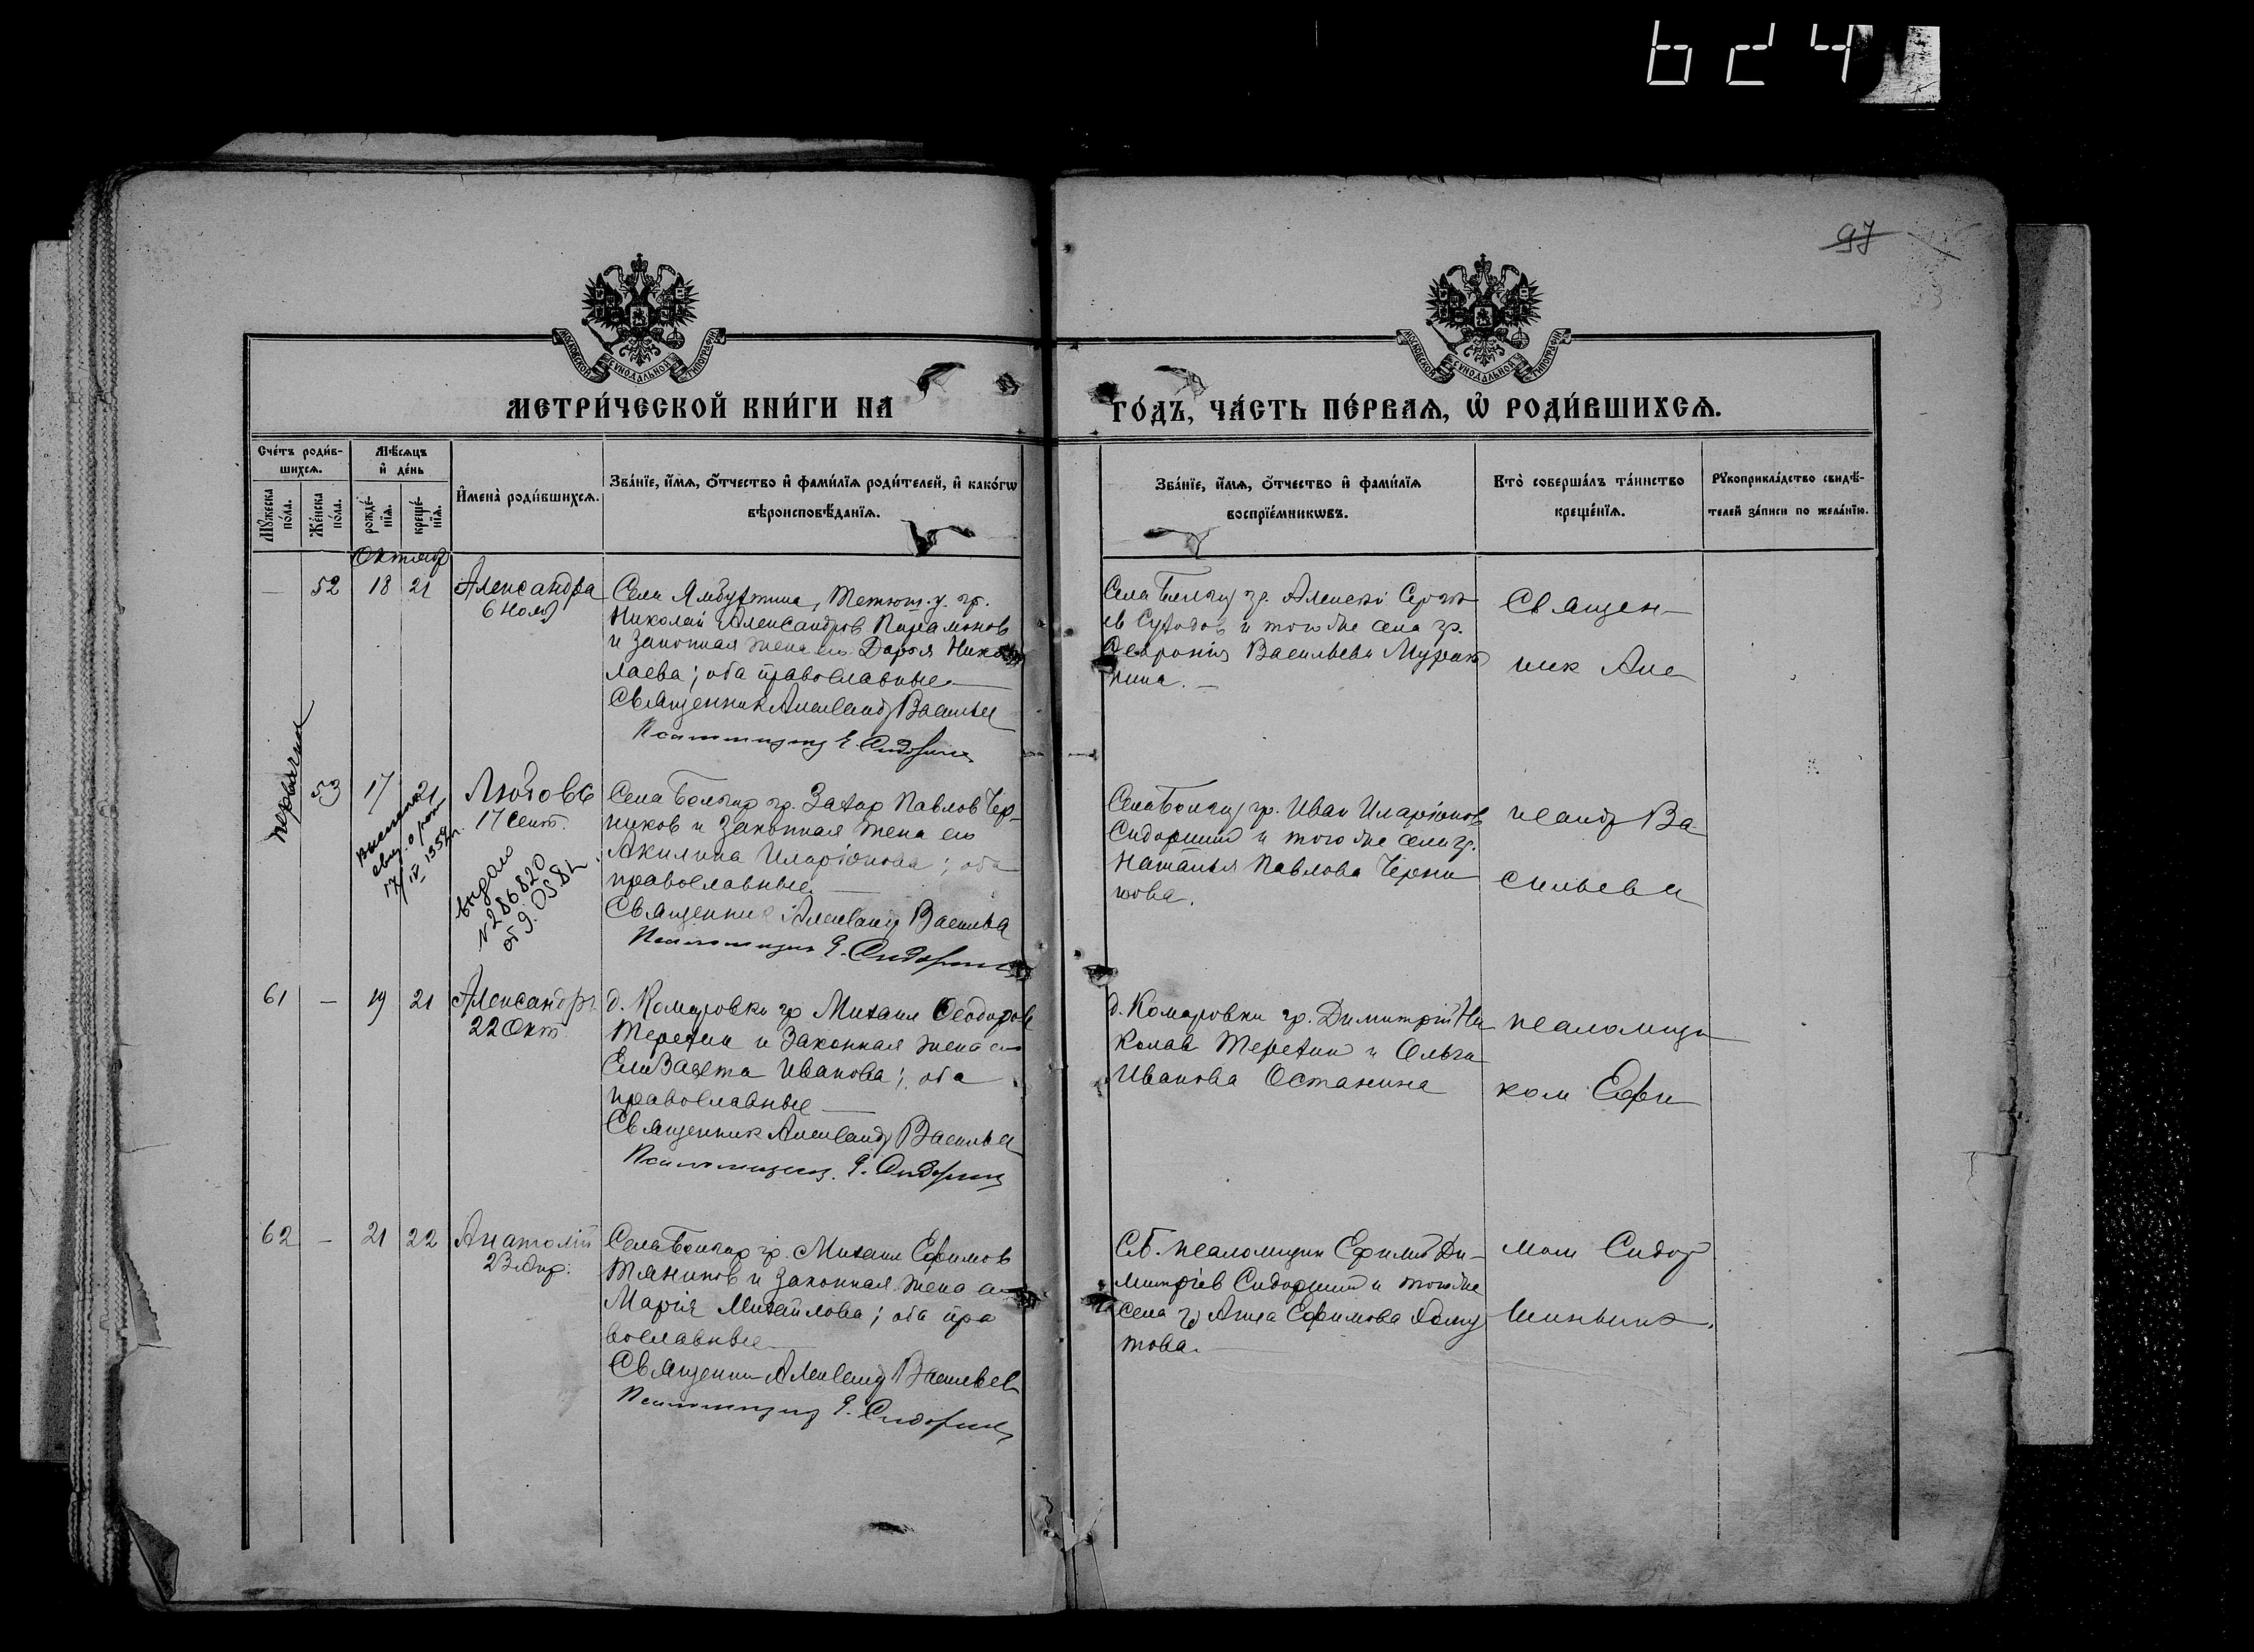 624
97
МОСКОВСКОЙ СѴНОДАЛЬНОЙ ТИПОГРАФІИ
МОСКОВСКОЙ СѴНОДАЛЬНОЙ ТИПОГРАФІИ
МЕТРИ́ЧЕСКОЙ КНИ́ГИ НА
ГО́ДЪ, ЧА́СТЬ ПЕ́РВАѦ, Ѡ҆ РОДИ́ВШИХСѦ.
Сче́тъ роди́в-
шихсѧ.
Мꙋжеска по́ла.
Же́нска по́ла.
Мѣ́сѧцъ
и҆ де́нь
рожде́-
нїѧ.
креще́-
нїѧ.
И҆мена̀ роди́вшихсѧ.
Зва́нїе, и҆́мѧ, ѻ҆́тчество и҆ фами́лїѧ роди́телей, и҆ како́гѡ
вѣроисповѣ́данїѧ.
Зва́нїе, и҆́мѧ, ѻ҆́тчество и҆ фами́лїѧ
воспрїе́мникѡвъ.
Кто̀ соверша́лъ та́инство
креще́нїѧ.
Рꙋкоприкла́дство свидѣ́-
телей за́писи по жела́нїю.
Октябр
— 52 18 21 Александра
6 Нояб
Села Ямбухтина, Тетюш. у. гр.
Николай Александров Парамонов
и законная жена его Дарья Нико
лаева; оба православные —
Священник Александр Васильев
Псаломщик Е. Сидоршин
Села Болгар гр. Алексей Сергѣ
ев Суходов и того же села гр.
Феврония Васильева
нина. —
Священ—
ник Але
первичн
53 17 21 Любовь
17 Сент.
17/IV 1958 г.
выдано
№ 286820
от 9.03.82
Села Болгар гр. Захар Павлов Чер-
ников и законная жена его
Акилина Иларіонова; оба
православные —
Священник Александр Васильев
Псаломщик Е. Сидоршин
Села Болгар гр. Иван Иларіонов
Сидоршин и того же села гр.
Наталья Павлова Черни
кова.
ксандр Ва
сильев и
61 — 19 21 Александръ
22 Окт.
д. Комаровки гр Михаил Феодоров
Терехин и законная жена его
Елизавета Иванова; оба
православные —
Священник Александр Васильев
Псаломщик Е. Сидоршин
д. Комаровки гр. Димитрій Ни
колаев Терехин и Ольга
Иванова Останина
псаломщи
ком Ефи
62 — 21 22 Анатолій
23 Апр.
Села Болгар гр. Михаил Ефимов
Тяников и законная жена его
Марія Михайлова; оба пра
вославные
Священник Александр Васильев
Псаломщик Е. Сидоршин
С.Б. псаломщик Ефимій Ди-
митріев Сидоршин и того же
села гр Анна Ефимова Хому
това. —
мом Сидор
шиным.